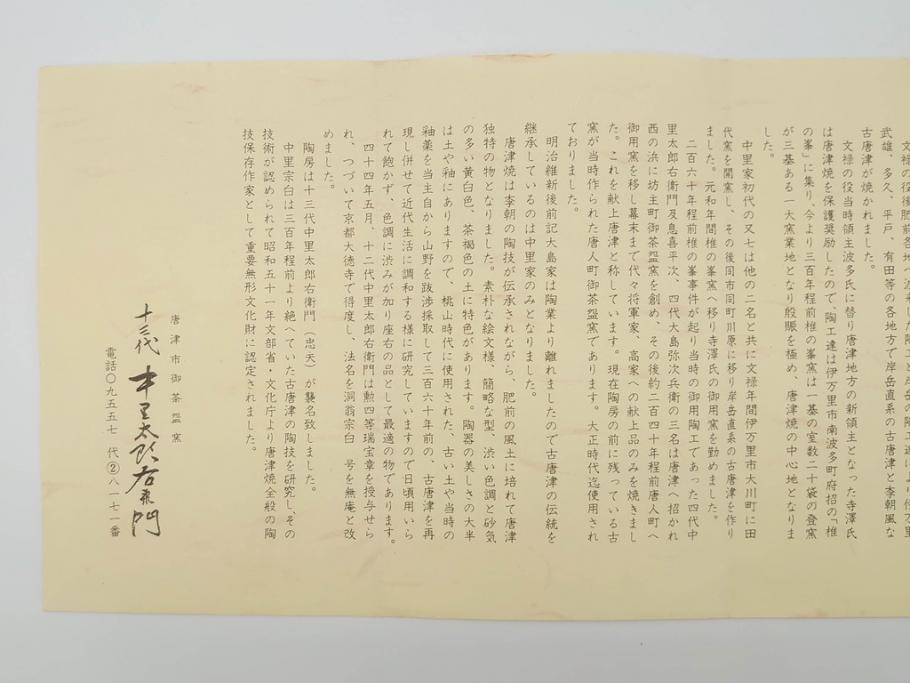 文禄の役後肥前各地へ
武雄、多久、平戸、有田等の各地方で岸岳直系の古唐津と李朝風な
古唐津が焼かれました。
文禄の役当時領主波多氏に替り唐津地方の新領主となった寺澤氏
は唐津焼を保護奨励したので、陶工達は伊万里市南波多町府招の「椎
の峯」に集り、今より三百年程前椎の峯窯は一基の室数二十袋の登窯
が三基ある一大窯業地となり殷賑を極め、唐津焼の中心地となりま
した。
中里家初代の又七は他の二名と共に文禄年間伊万里市大川町に田
代窯を開窯し、その後同市同町川原に移り岸岳直系の古唐津を作り
ました。元和年間椎の峯窯へ移り寺澤氏の御用窯を勤めました。
二百六十年程前椎の峯事件が起り当時の御用陶工であった四代中
里太郎右衛門及息喜平次、四代大島弥次兵衛の三名は唐津へ招かれ
西の浜に坊主町御茶盌窯を創め、その後約二百四十年程前唐人町へ
御用窯を移し幕末まで代々将軍家、高家への献上品のみを焼きまし
た。これを献上唐津と称しています。現在陶房の前に残っている古
窯が当時作られた唐人町御茶盌窯であります。大正時代迄使用され
ておりました。
明治維新後前記大島家は陶業より離れましたので古唐津の伝統を
継承しているのは中里家のみとなりました。
唐津焼は李朝の陶技が伝承されながら、肥前の風土に培れて唐津
独特の物となりました。素朴な絵文様、簡略な型、渋い色調と砂気
の多い黄白色、茶褐色の土に特色があります。陶器の美しさの大半
は土や釉にありますので、桃山時代に使用された、古い土や当時の
釉薬を当主自から山野を跋渉採取して三百六十年前の、古唐津を再
現し併せて近代生活に調和する様に研究していますので日頃用いら
れて飽かず、色調に渋みが加り座右の品として最適の物であります。
四十四年五月、十二代中里太郎右衛門は勲四等瑞宝章を授与せら
れ、つづいて京都大徳寺で得度し、法名を洞翁宗白 号を無庵と改
めました。
陶房は十三代中里太郎右衛門（忠夫）が襲名致しました。
中里宗白は三百年程前より絶へていた古唐津の陶技を研究し、その
技術が認められて昭和五十一年文部省・文化庁より唐津焼全般の陶
技保存作家として重要無形文化財に認定されました。
唐津市御茶盌窯
十三代 中里太郎右衛門
電話〇九五五七 代②八一七一番